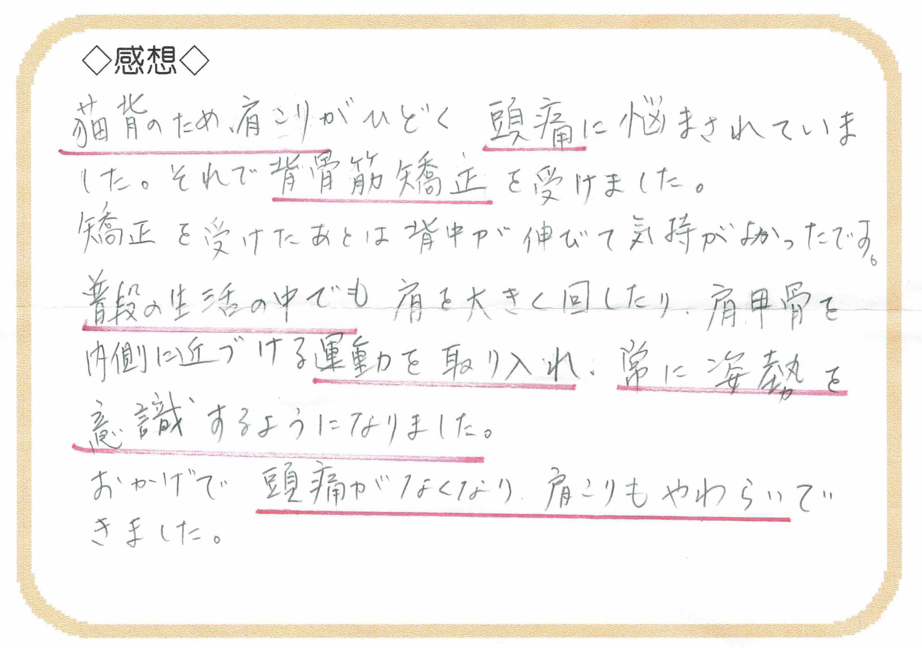 ◇感想◇
猫背のため、肩こりがひどく 頭痛に悩まされていま
した。それで背骨筋矯正を受けました。
矯正を受けたあとは背中が伸びて気持がよかったです。
普段の生活の中でも肩を大きく回したり、肩甲骨を
内側に近づける運動を取り入れ、常に姿勢を
意識するようになりました。
おかげで 頭痛がなくなり、肩こりもやわらいで
きました。